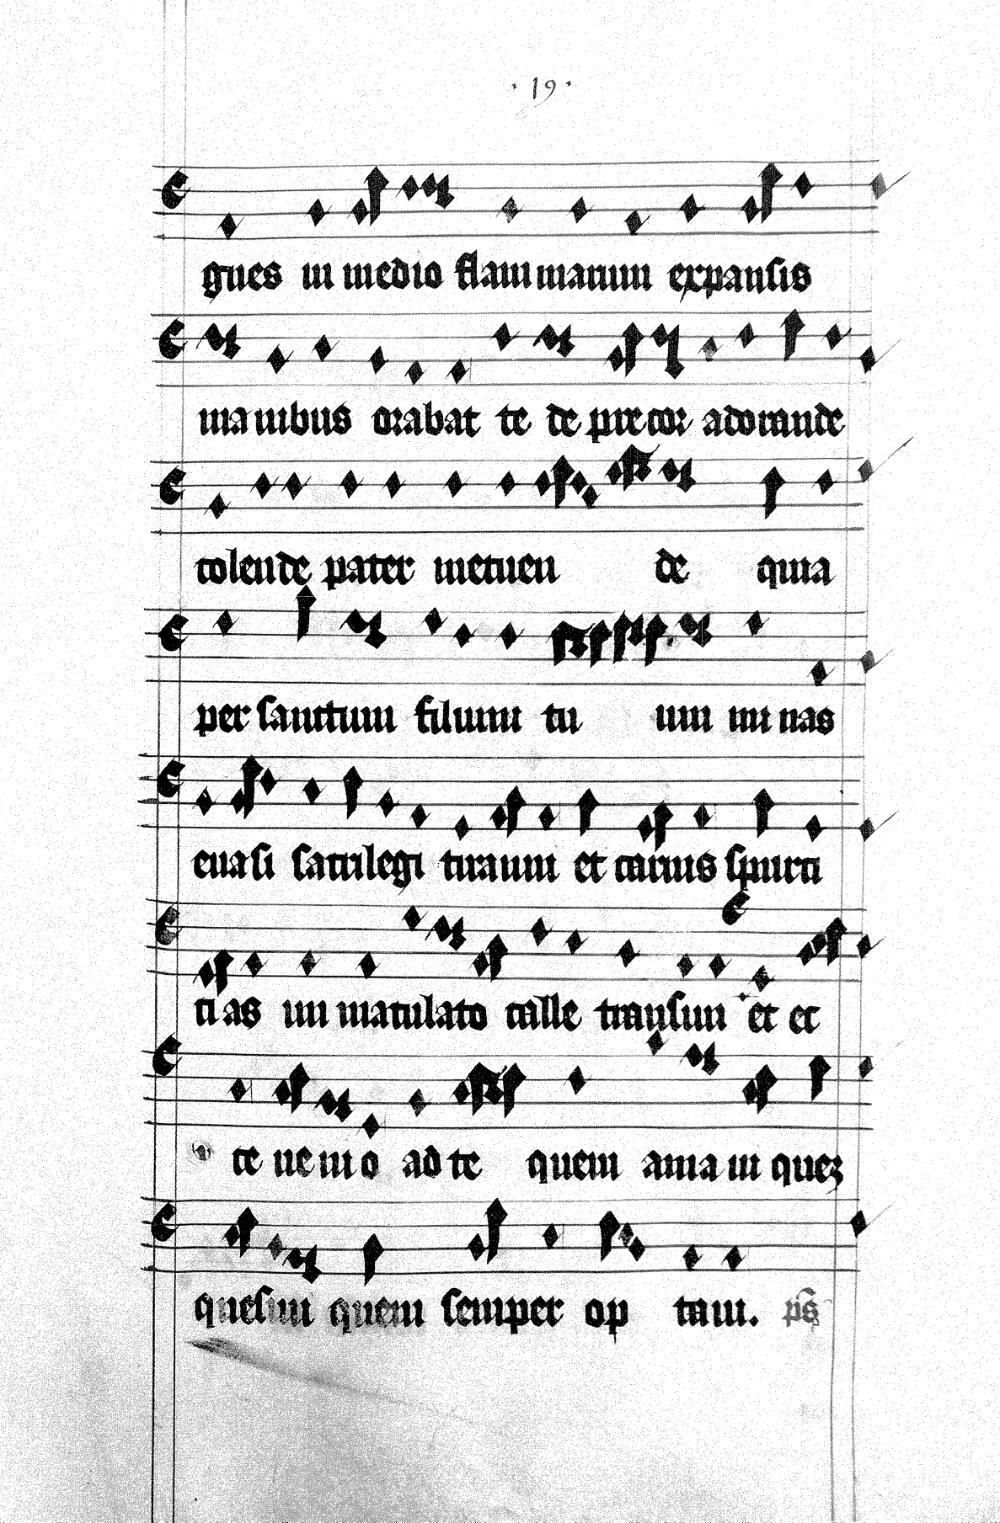 · 19 ·
gnes in medio flammarum expansis
manibus orabat te deprecor adorande
colende pater metuen de quia
per sanctum filium tu um mi nas
euasi sacrilegi tiranni et carnis spurci
ti as im maculato calle transiui et ec
ce uenio ad te quem ama ui quez
quesiui quem semper op taui. ps